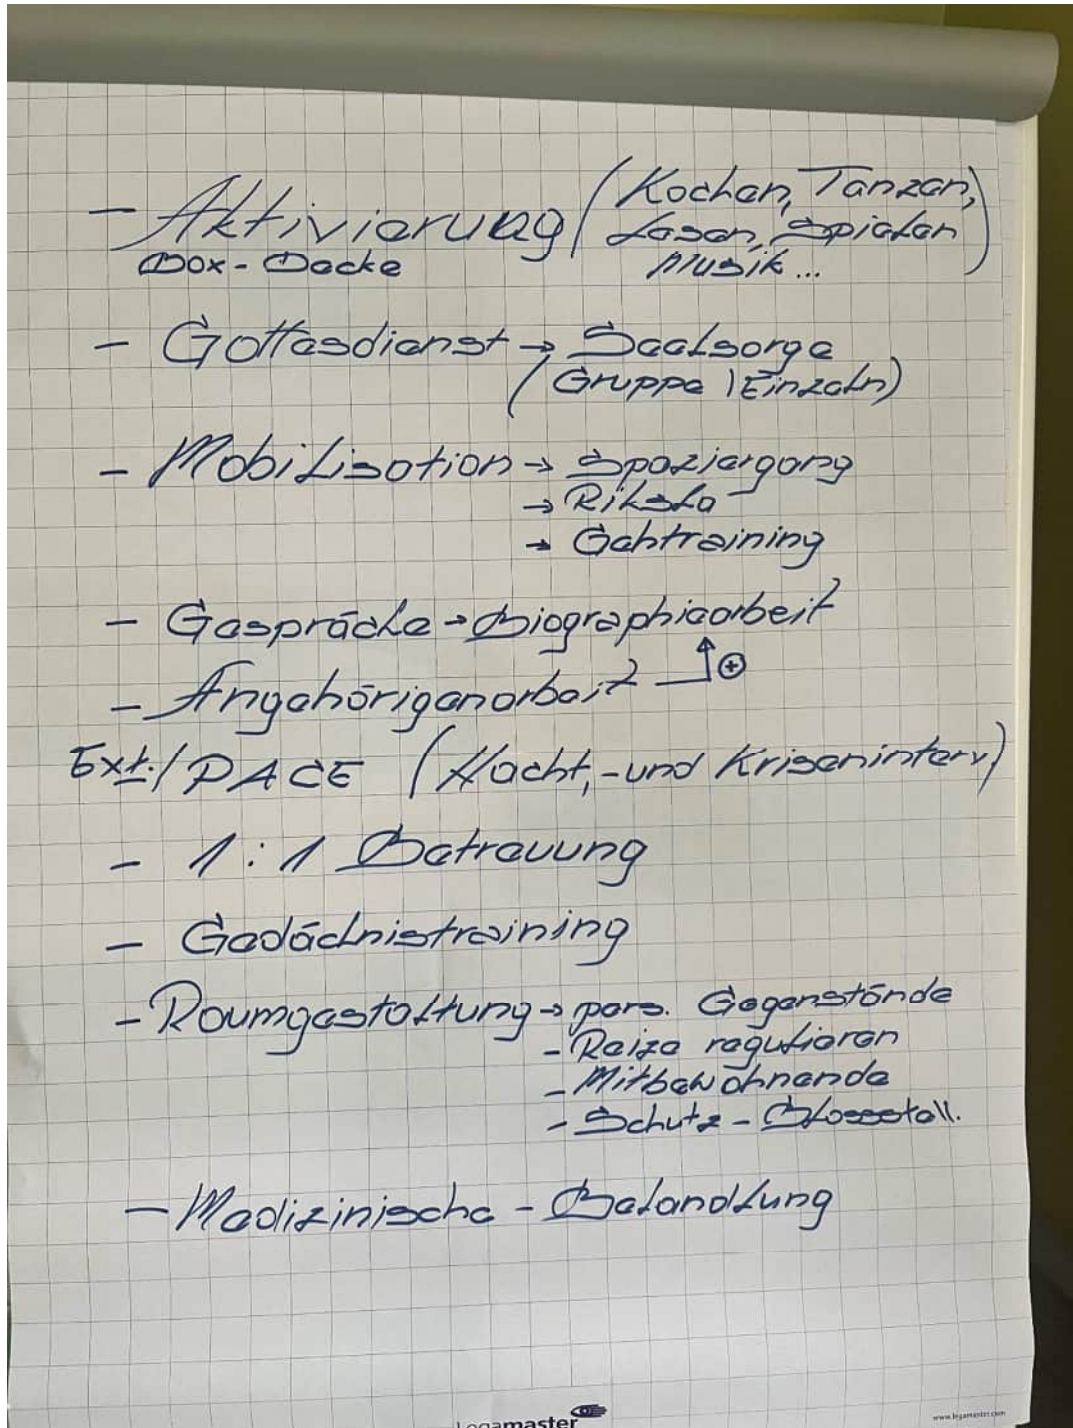 - Aktivierung (Kochen, Tanzen,
Lesen, Spielen
Box - Decke Musik ...)
- Gottesdienst → Seelsorge
(Gruppe \ Einzeln)
- Mobilisation → Spaziergang
→ Riksha
→ Gehtraining
- Gespräche → Biographiearbeit
- Angehörigenarbeit ↑ ⊕
Ext./ PACE (Nacht,- und Kriseninterv)
- 1:1 Betreuung
- Gedächnistraining
- Raumgestaltung → pers. Gegenstände
- Reize regulieren
- Mitbewohnende
- Schutz - Blossstell.
- Medizinische - Behandlung
Legamaster
www.legamaster.com